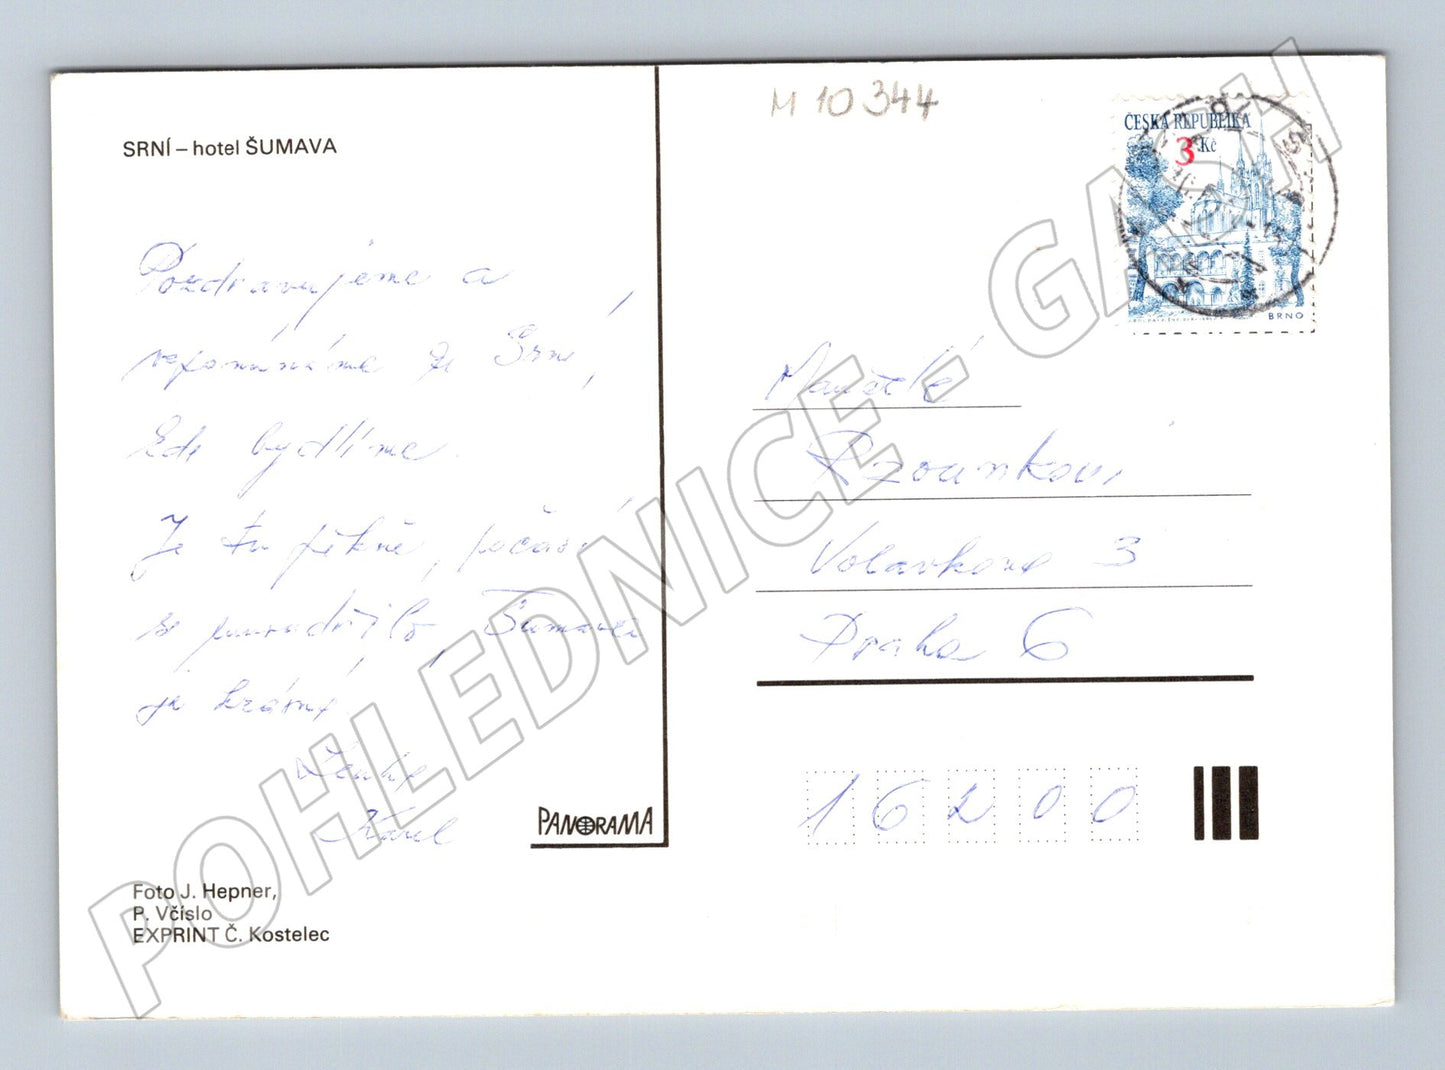 SRNÍ – hotel ŠUMAVA
M 10344
ČESKA REPUBLIKA
3 Kč
BRNO
Pozdravujeme a
vzpomínáme ze Srní,
kde bydlíme.
Je tu pěkně, počasí
se umoudřilo, Šumava
je krásná
Lenka
Karel
Manželé
Rzounkovi
Volavkova 3
Praha 6
16200
PANORAMA
Foto J. Hepner,
P. Včíslo
EXPRINT Č. Kostelec
POHLEDNICE - GASH